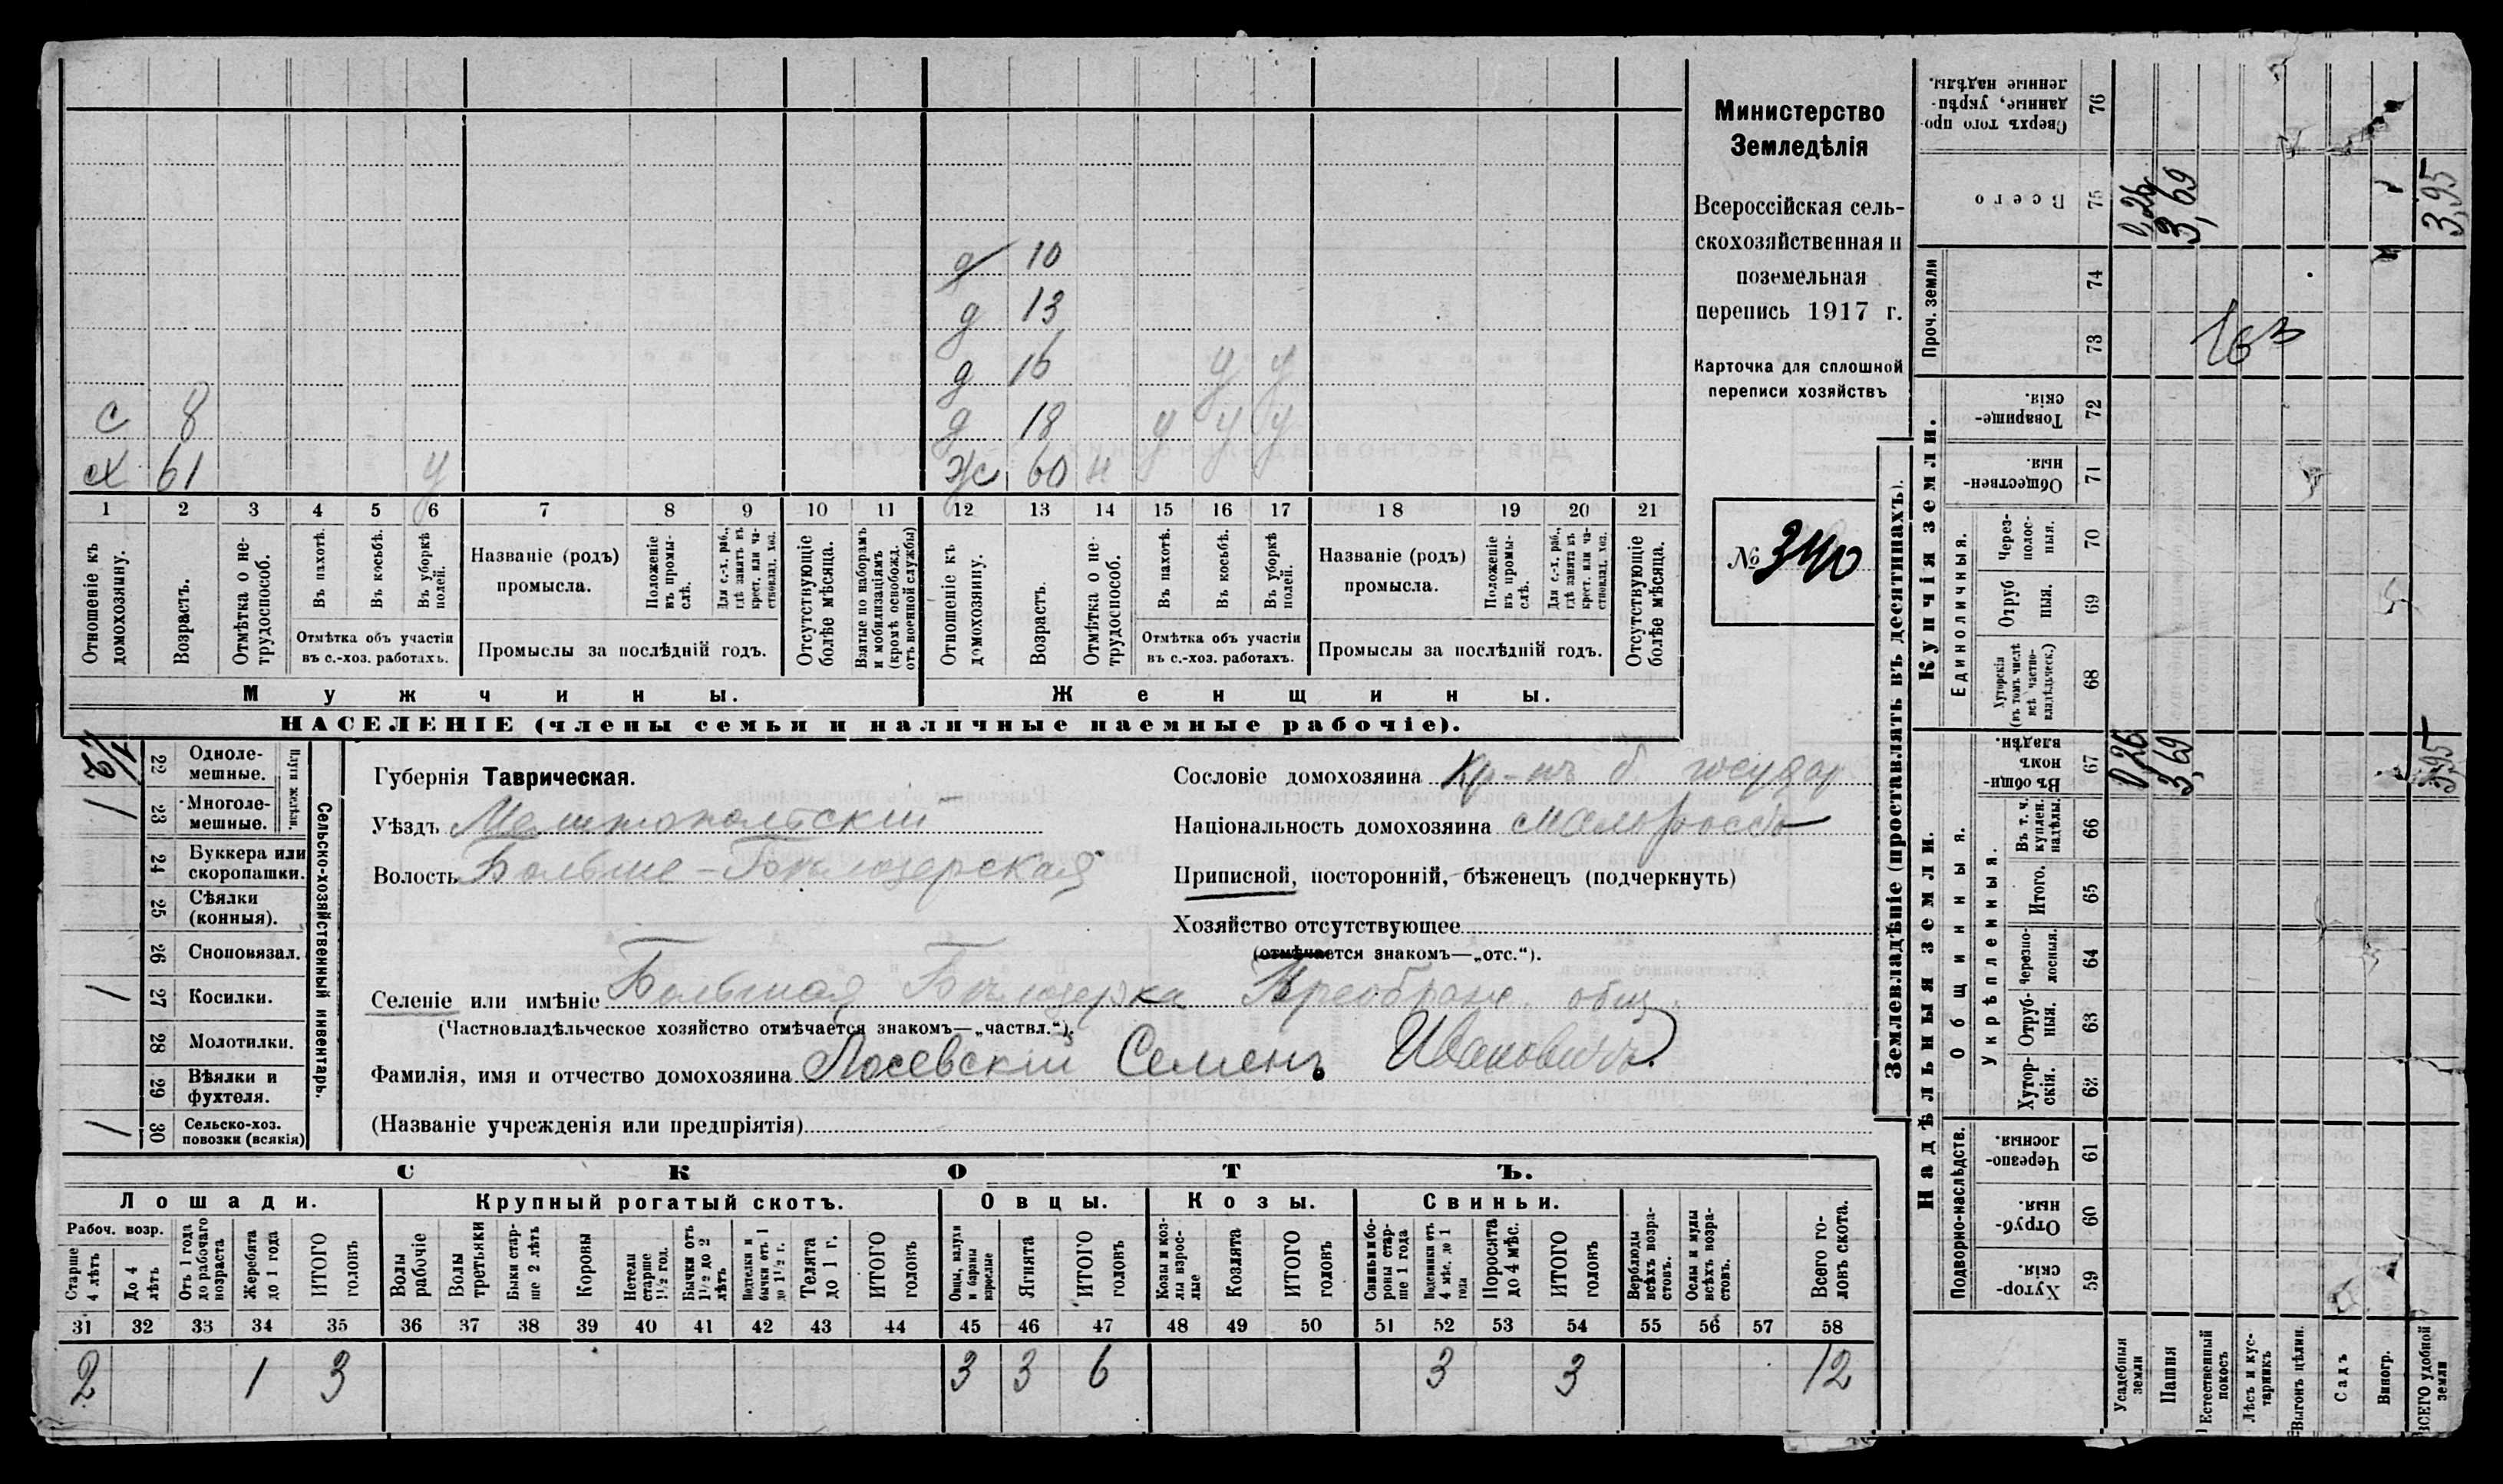 с 8
х 61 у
д 10
д 13
д 16 у у
д 18 у у у
ж 60 н
1 2 3 4 5 6 7 8 9 10 11 12 13 14 15 16 17 18 19 20 21
Отношеніе къ домохозяину.
Возрастъ.
Отмѣтка о не-трудоспособ.
Въ пахотѣ.
Въ косьбѣ.
Въ уборкѣ полей.
Отмѣтка объ участіи
въ с.-хоз. работахъ.
Названіе (родъ)
промысла.
Положеніе въ промы-слѣ.
Для с.-х. раб., гдѣ занятъ въ крест. или ча-стновлад. хоз.
Промыслы за послѣдній годъ.
Отсутствующіе болѣе мѣсяца.
Взятые по наборамъ и мобилизаціямъ (кромѣ освобожд. отъ военной службы)
Отношеніе къ домохозяину.
Возрастъ.
Отмѣтка о не-трудоспособ.
Въ пахотѣ.
Въ косьбѣ.
Въ уборкѣ полей.
Отмѣтка объ участіи
въ с.-хоз. работахъ.
Названіе (родъ)
промысла.
Положеніе въ промы-слѣ.
Для с.-х. раб., гдѣ занята въ крест. или ча-стновлад. хоз.
Промыслы за послѣдній годъ.
Отсутствующіе болѣе мѣсяца.
Мужчины.
Женщины.
НАСЕЛЕНІЕ (члены семьи и наличные наемные рабочіе).
Министерство
Земледѣлія
Всероссійская сель-
скохозяйственная и
поземельная
перепись 1917 г.
Карточка для сплошной
переписи хозяйствъ
№ 340
Плуги желѣзн.
22 Одноле-мешные.
23 Многоле-мешные. /
24 Буккера или скоропашки.
25 Сѣялки (конныя).
26 Сноповязал.
27 Косилки. /
28 Молотилки.
29 Вѣялки и фухтеля.
30 Сельско-хоз. повозки (всякія) /
Сельско-хозяйственный инвентарь.
Губернія Таврическая.
Уѣздъ Мелитопольскій
Волость Больше-Бѣлозерская
Сословіе домохозяина Кр-нъ б. государ
Національность домохозяина малороссъ
Приписной, посторонній, бѣженецъ (подчеркнуть)
Хозяйство отсутствующее
(отмѣчается знакомъ—„отс.“).
Селеніе или имѣніе Большая Бѣлозерка Преображ. общ.
(Частновладѣльческое хозяйство отмѣчается знакомъ—„частвл.“).
Фамилія, имя и отчество домохозяина Лосевскій Семенъ Ивановичъ
(Названіе учрежденія или предпріятія)
СКОТЪ.
Лошади.
Крупный рогатый скотъ.
Овцы.
Козы.
Свиньи.
Рабоч. возр.
Старше 4 лѣтъ
До 4 лѣтъ
Отъ 1 года до рабочаго возраста
Жеребята до 1 года
ИТОГО головъ
Волы рабочіе
Волы третьяки
Быки стар-ше 2 лѣтъ
Коровы
Нетели старше 1½ год.
Бычки отъ 1½ до 2 лѣтъ
Подтелки и бычки отъ 1 до 1½ г.
Телята до 1 г.
ИТОГО головъ
Овцы, валухи и бараны взрослые
Ягнята
ИТОГО головъ
Козы и коз-лы взрос-лые
Козлята
ИТОГО головъ
Свиньи и бо-ровы стар-ше 1 года
Подсвинки отъ 4 мѣс. до 1 года
Поросята до 4 мѣс.
ИТОГО головъ
Верблюды всѣхъ возра-стовъ.
Ослы и мулы всѣхъ возра-стовъ.
Всего го-ловъ скота.
31 32 33 34 35 36 37 38 39 40 41 42 43 44 45 46 47 48 49 50 51 52 53 54 55 56 57 58
2 1 3 3 3 6 3 3 12
Землевладѣніе (проставлять въ десятинахъ).
Надѣльныя земли.
Купчія земли.
Проч. земли
Подворно-наслѣдств.
Общинныя.
Укрѣпленныя.
Единоличныя.
Хутор-скія. 59
Отруб-ныя. 60
Черезпо-лосныя. 61
Хутор-скія. 62
Отруб-ныя. 63
Черезпо-лосныя. 64
Итого. 65
Въ т. ч. куплен. надѣлы. 66
Въ общин-номъ владѣн. 67 0,26 3,69 3,95
Хуторскія (въ томъ числѣ всѣ частно-владѣльческ.) 68
Отруб ныя. 69
Через-полос-ныя. 70
Обществен-ныя. 71
Товарище-скія. 72
73
74
Всего 75 0,26 3,69 3,95
Сверхъ того про-данные, укрѣп-ленные надѣлы. 76
Усадебныя земли
Пашня
Естественный покосъ
Лѣсъ и кус-тарникъ
Выгонъ цѣлин.
Садъ
Виногр.
ВСЕГО удобной земли